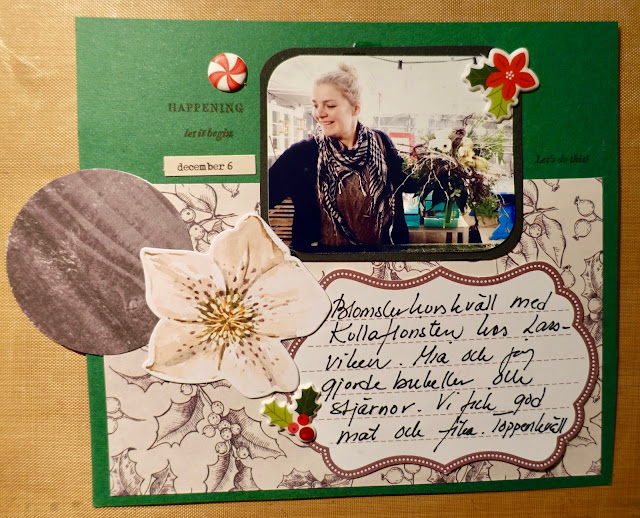 HAPPENING
let it begin
december 6
Let's do this!
Blomsterkurskväll med
Kullaflonsten hos Lars-
viken. Mia och jag
gjorde buketter och
stjärnor. Vi fick god
mat och fika. Toppenkväll